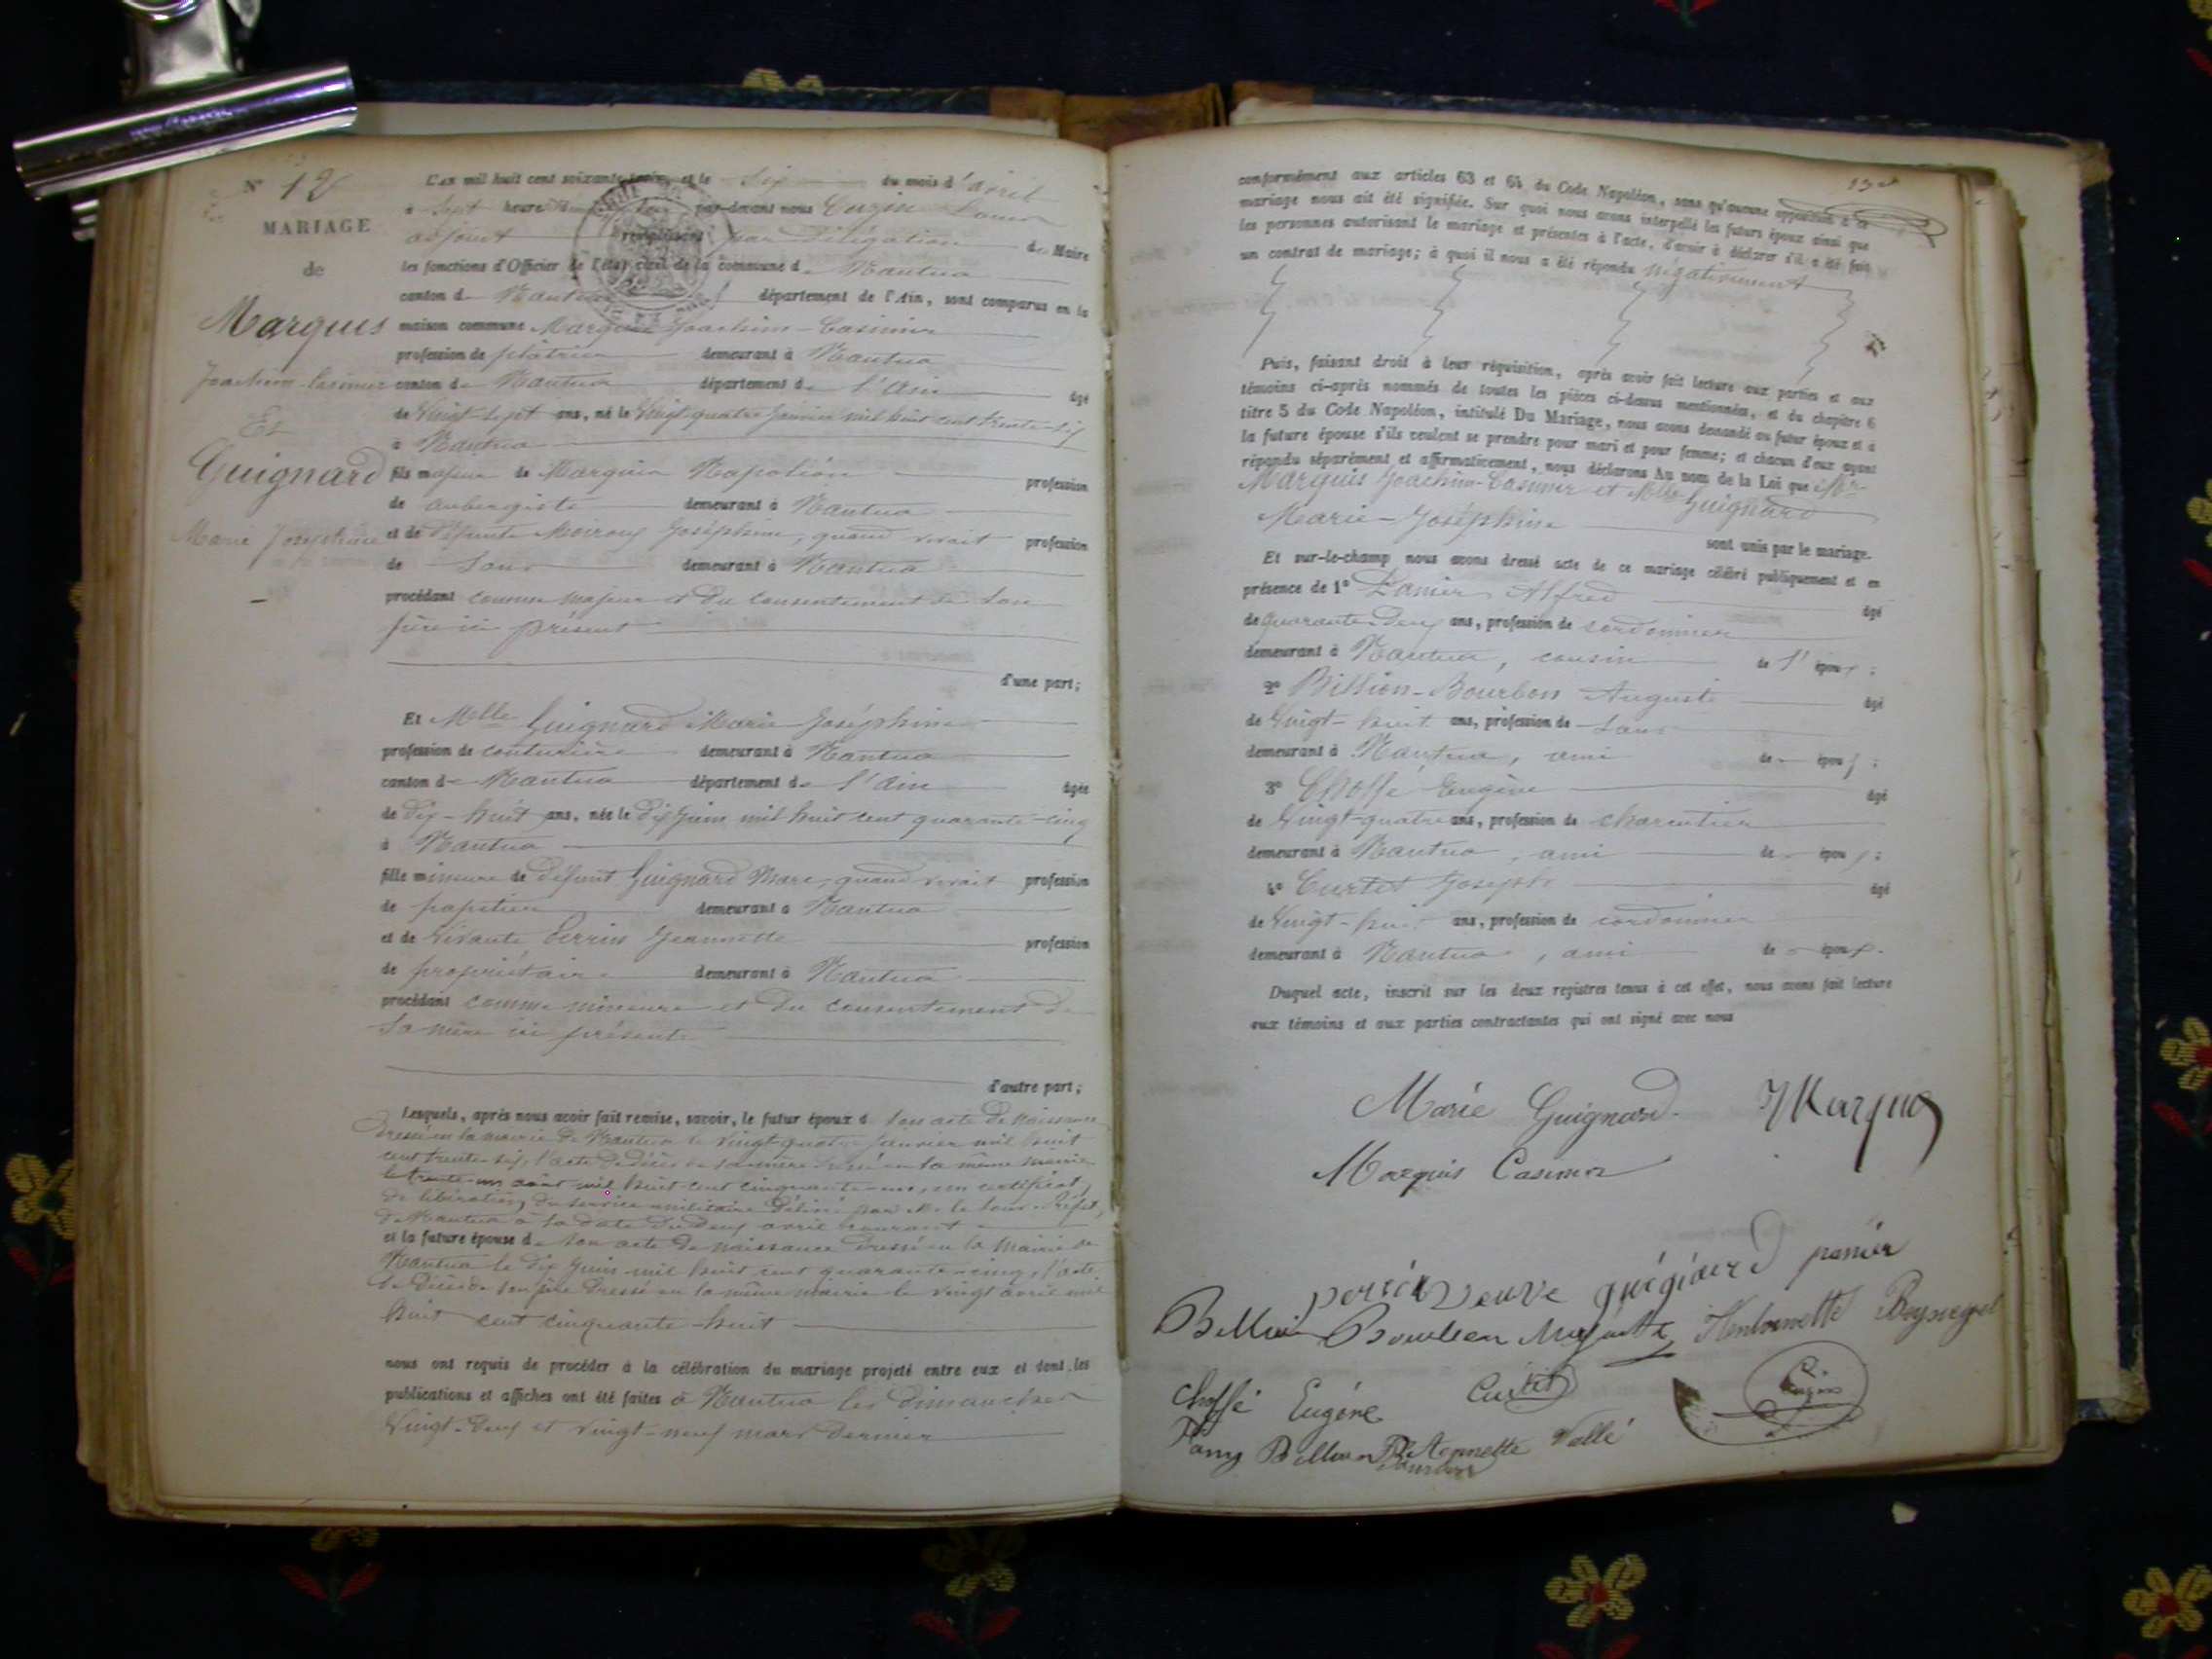 N° 12
MARIAGE
de
Marquis
Joachim-Casimir
Et
Guignard
Marie Joséphine
L'an mil huit cent soixante-trois, et le six du mois d'avril
à sept heures du soir par-devant nous Cuzin Louis
adjoint remplissant par délégation du Maire
les fonctions d'Officier de l'état civil de la commune de Nantua
canton de Nantua département de l'Ain, sont comparus en la
maison commune Marquis Joachim-Casimir
profession de plâtrier demeurant à Nantua
canton de Nantua département de l'Ain âgé
de vingt-sept ans, né le vingt-quatre janvier mil huit cent trente-six
à Nantua
fils majeur de Marquis Napoléon profession
de aubergiste demeurant à Nantua
et de défunte Joséphine, quand vivait profession
de sans demeurant à Nantua
procédant comme majeur et du consentement de son
père ici présent
d'une part;
Et Mlle Guignard Marie Joséphine
profession de couturière demeurant à Nantua
canton de Nantua département de l'Ain âgée
de dix-huit ans, née le dix juin mil huit cent quarante-cinq
à Nantua
fille mineure de défunt Guignard Marc, quand vivait profession
de demeurant à Nantua
et de vivante Perrin Jeannette profession
de propriétaire demeurant à Nantua
procédant comme mineure et du consentement de
sa mère ici présente
d'autre part;
Lesquels, après nous avoir fait remise, savoir, le futur époux de son acte de naissance
dressé en la mairie de Nantua le vingt-quatre janvier mil huit
cent trente-six, l'acte de décès de sa mère dressé en la même mairie
le trente-un août mil huit cent cinquante-un, un certificat
de libération du service militaire délivré par Mr le Sous-Préfet
de Nantua à la date du deux avril courant
et la future épouse de son acte de naissance dressé en la mairie de
Nantua le dix juin mil huit cent quarante-cinq, l'acte
de décès de son père dressé en la même mairie le vingt avril mil
huit cent cinquante-huit
nous ont requis de procéder à la célébration du mariage projeté entre eux et dont les
publications et affiches ont été faites à Nantua les dimanches
vingt-deux et vingt-neuf mars dernier
conformément aux articles 63 et 64 du Code Napoléon, sans qu'aucune opposition à ce
mariage nous ait été signifiée. Sur quoi nous avons interpellé les futurs époux ainsi que
les personnes autorisant le mariage et présentes à l'acte, d'avoir à déclarer s'il a été fait
un contrat de mariage; à quoi il nous a été répondu négativement
Puis, faisant droit à leur réquisition, après avoir fait lecture aux parties et aux
témoins ci-après nommés de toutes les pièces ci-dessus mentionnées, et du chapitre 6
titre 5 du Code Napoléon, intitulé Du Mariage, nous avons demandé au futur époux et à
la future épouse s'ils veulent se prendre pour mari et pour femme; et chacun d'eux ayant
répondu séparément et affirmativement, nous déclarons Au nom de la Loi que Mr
Marquis Joachim-Casimir et Mlle Guignard
Marie-Joséphine
sont unis par le mariage.
Et sur-le-champ nous avons dressé acte de ce mariage célébré publiquement et en
présence de 1° Panier Alfred âgé
de quarante-deux ans, profession de cordonnier
demeurant à Nantua, cousin de l'époux;
2° Billion-Bourbon Auguste âgé
de vingt-huit ans, profession de sans
demeurant à Nantua, ami de époux;
3° Choffé Eugène âgé
de vingt-quatre ans, profession de charcutier
demeurant à Nantua, ami de époux;
4° Curtet Joseph âgé
de vingt-huit ans, profession de cordonnier
demeurant à Nantua, ami de époux.
Duquel acte, inscrit sur les deux registres tenus à cet effet, nous avons fait lecture
aux témoins et aux parties contractantes qui ont signé avec nous
Marie Guignard
Marquis Casimir
veuve panier
Choffé Eugène Curtet
Vallé